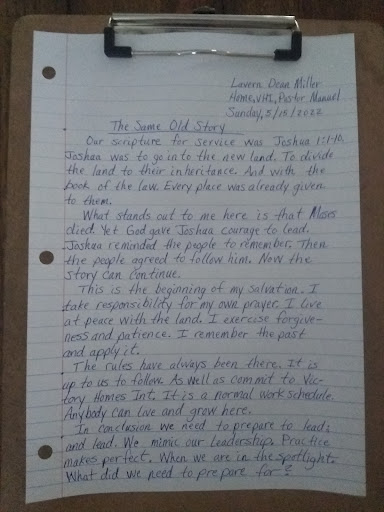 Lavern Dean Miller
Home, VHI, Pastor Manuel
Sunday, 5/15/2022
The Same Old Story
Our scripture for service was Joshua 1:1-10.
Joshua was to go into the new land. To divide
the land to their inheritance. And with the
book of the law. Every place was already given
to them.
What stands out to me here is that Moses
died. Yet God gave Joshua courage to lead.
Joshua reminded the people to remember. Then
the people agreed to follow him. Now the
story can continue.
This is the beginning of my salvation. I
take responsibility for my own prayer. I live
at peace with the land. I exercise forgive-
ness and patience. I remember the past
and apply it.
The rules have always been there. It is
up to us to follow. As well as commit to Vic-
tory Homes Int. It is a normal work schedule.
Anybody can live and grow here.
In conclusion we need to prepare to lead;
and lead. We mimic our Leadership. Practice
makes perfect. When we are in the spotlight.
What did we need to prepare for?